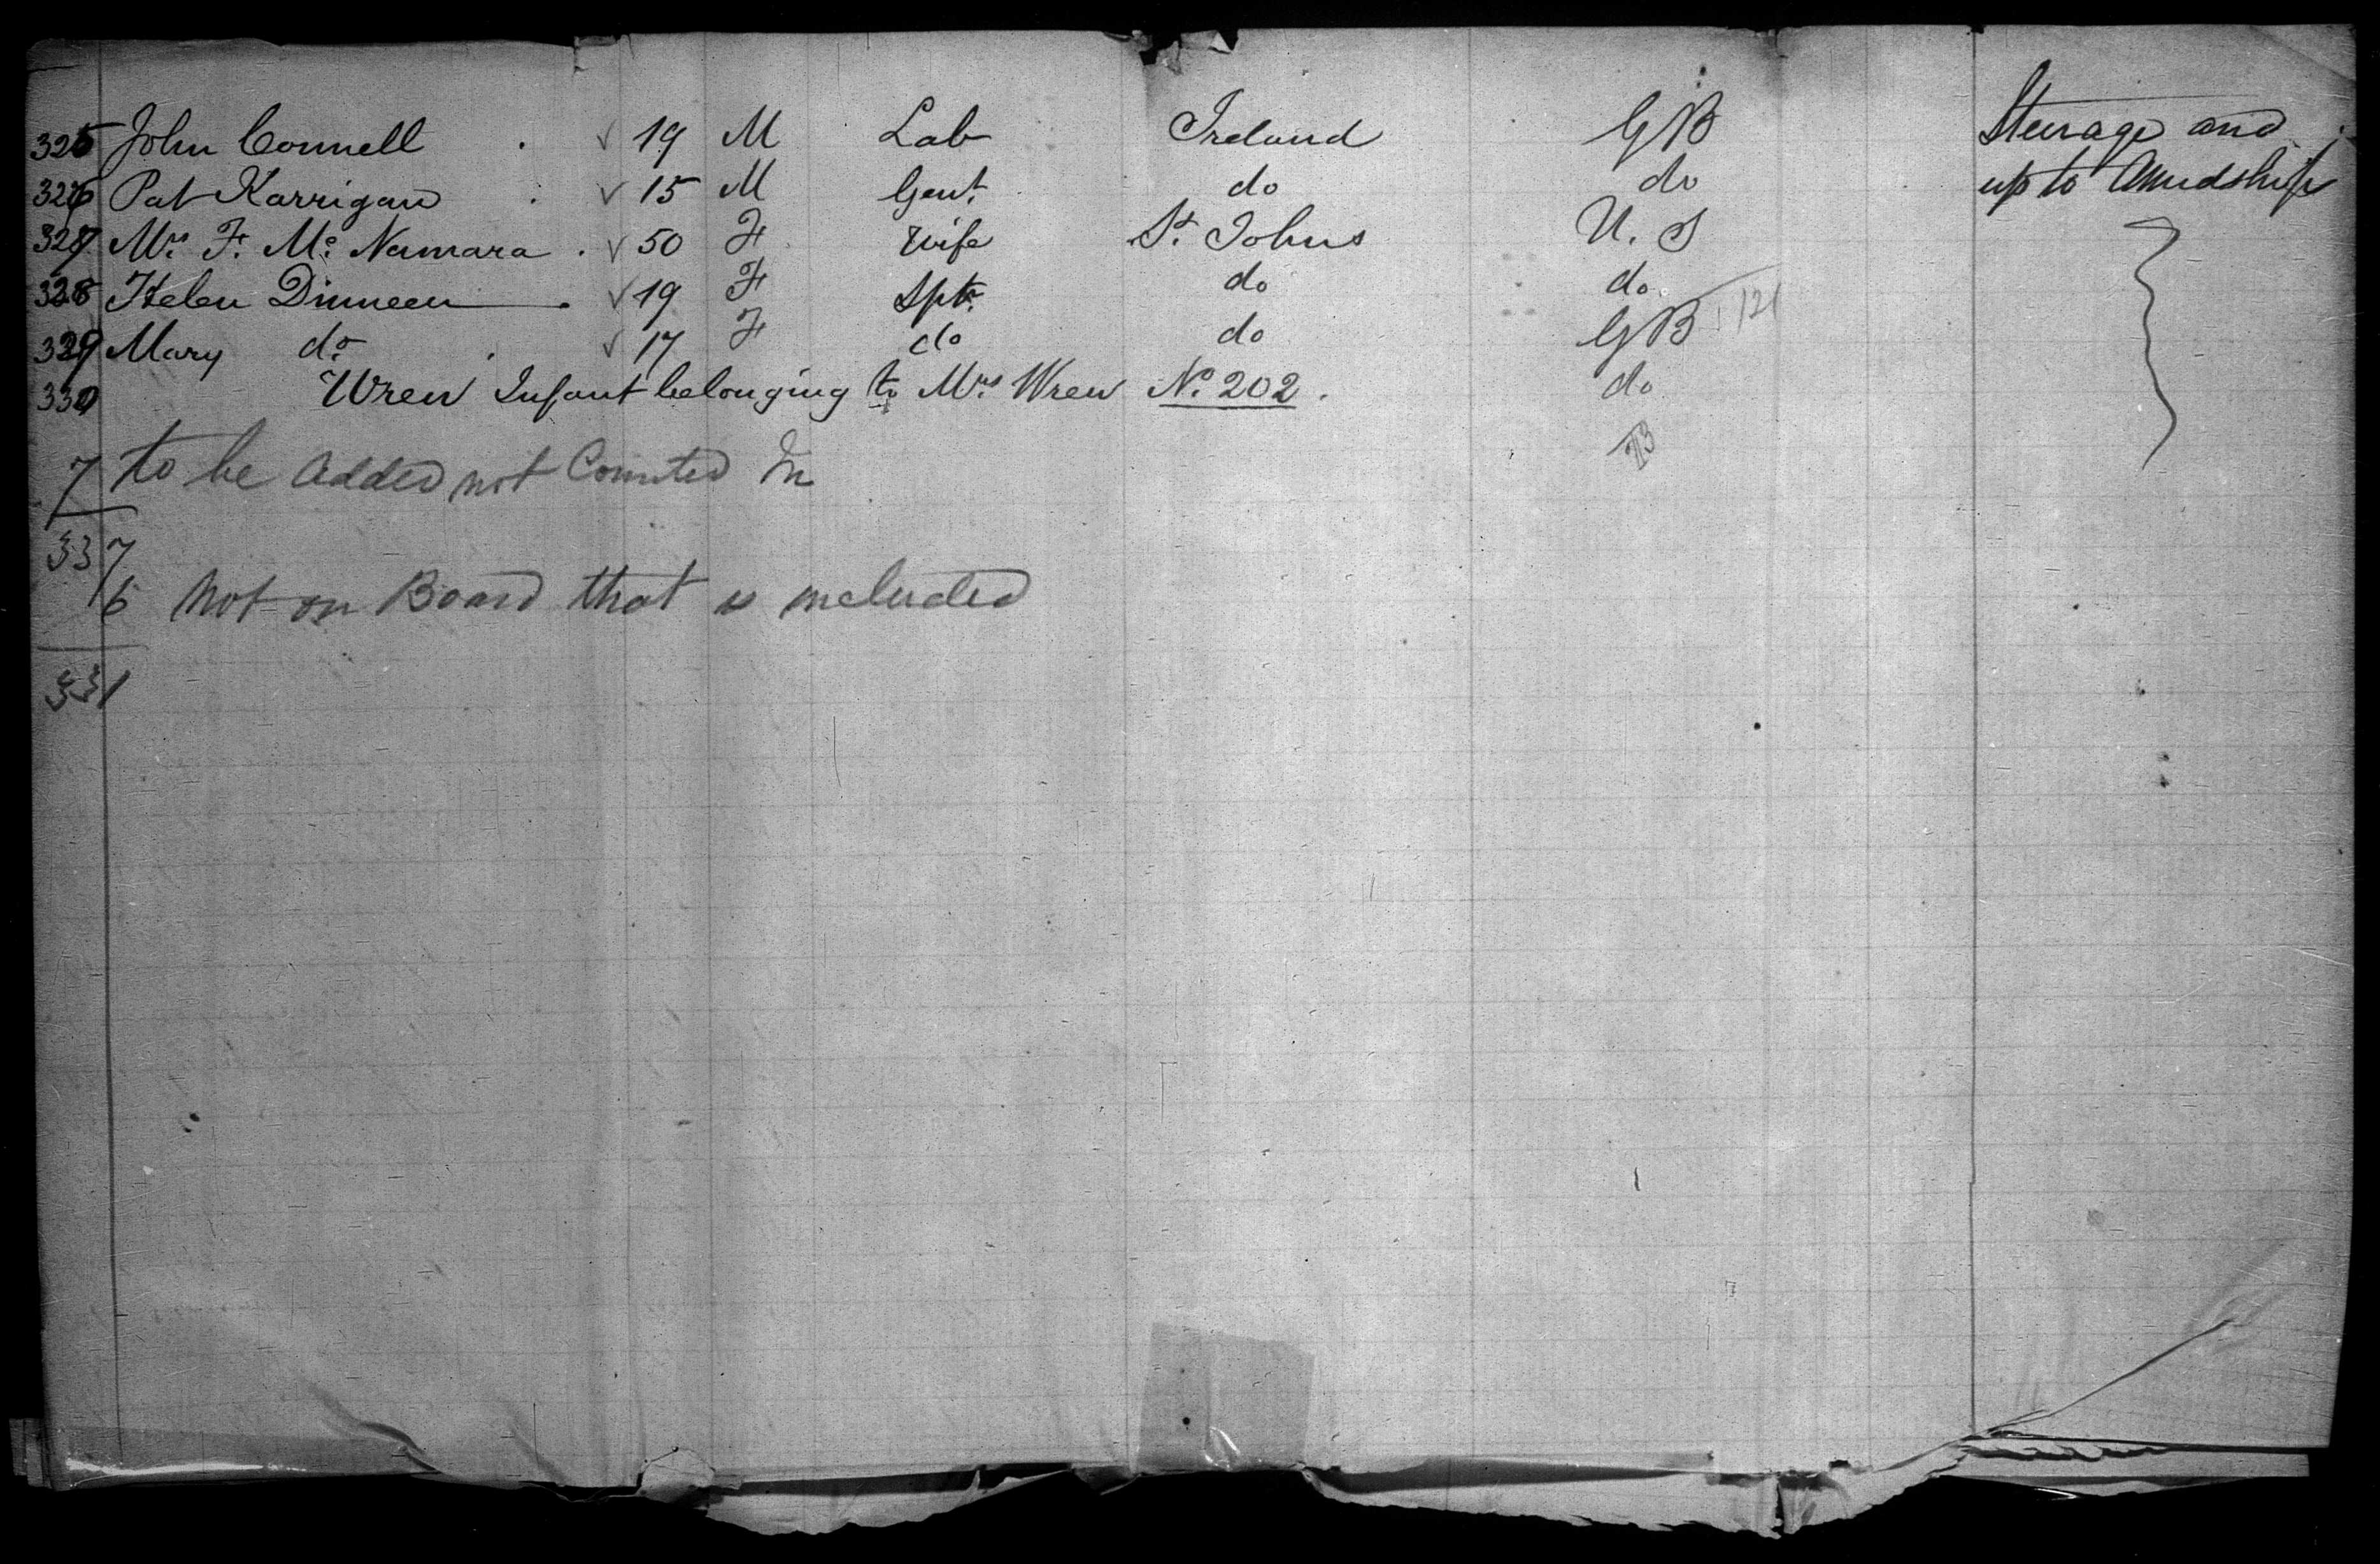 325 John Connell . √ 19 M Lab Ireland GB Steurage and
326 Pat Karrigan . √ 15 M Gent. do do up to Amidships
327 Mrs. F. Mc. Namara . √ 50 F Wife St. Johns U. S
328 Helen Dinneen . √ 19 F Sptr. do do
329 Mary do. . √ 17 F do do GB 121
330 Wren Infant belonging to Mrs. Wren No. 202. do
7 to be Added not Counted In
337
6 Not on Board that is included
331